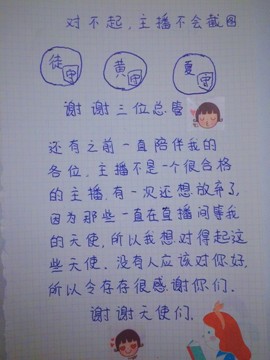 对不起,主播不会截图
徒 守 黄 守 夏 守
谢谢三位总管
还有之前一直陪伴我的
各位,主播不是一个很合格
的主播,有一次还想放弃了,
因为那些一直在直播间等我
的天使,所以我想对得起这
些天使.没有人应该对你好,
所以令存存很感谢你们.
谢谢天使们.